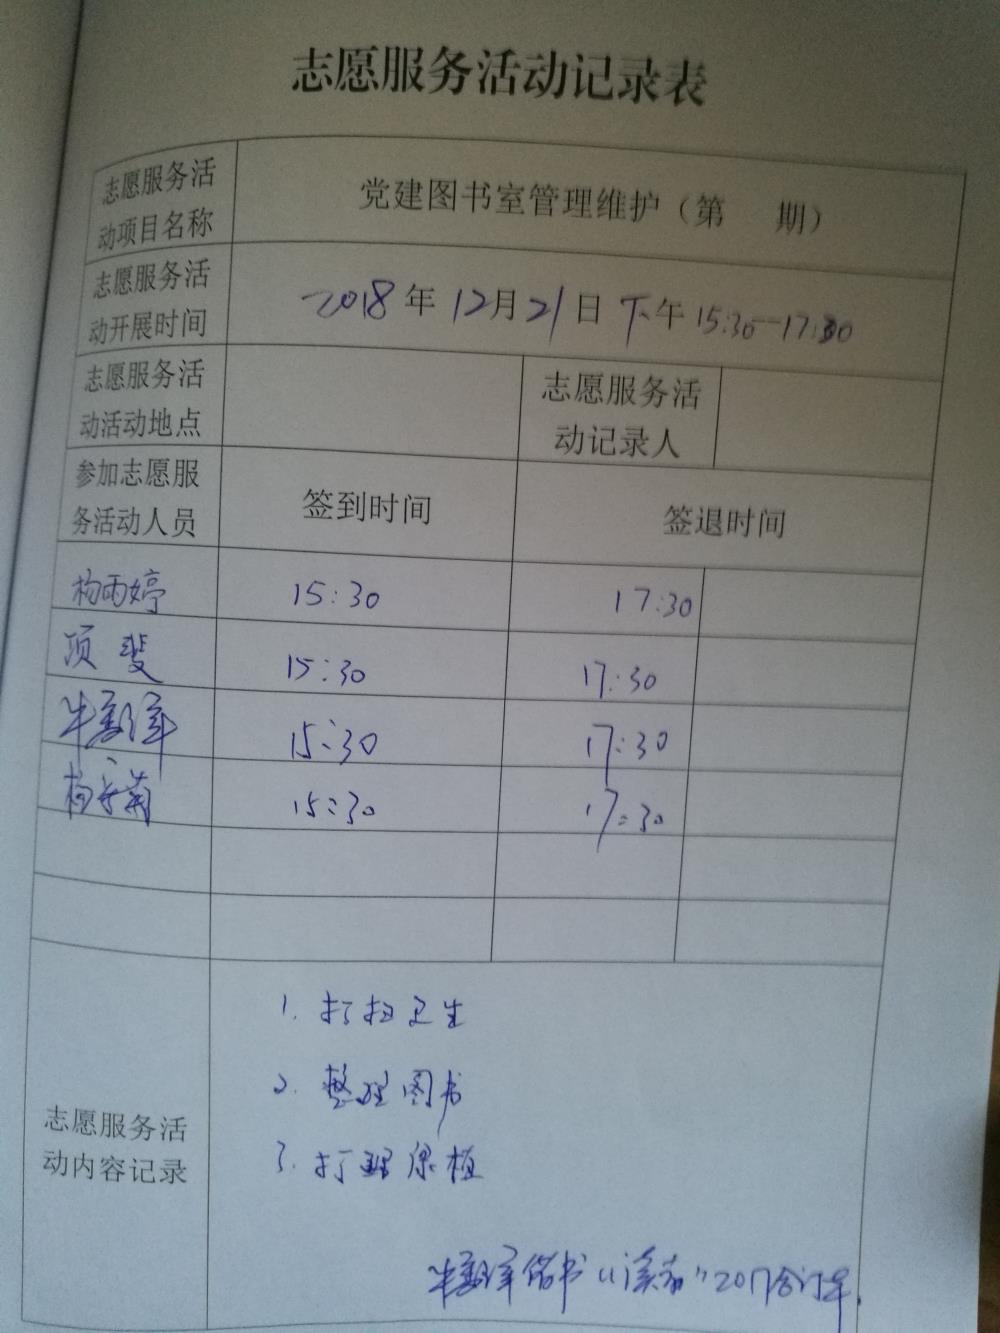 志愿服务活动记录表
志愿服务活
动项目名称
党建图书室管理维护（第 期）
志愿服务活
动开展时间
2018年12月21日 下午 15:30-17:30
志愿服务活
动活动地点
志愿服务活
动记录人
参加志愿服
务活动人员
签到时间
签退时间
杨雨婷 15:30 17:30
项斐 15:30 17:30
牛 15:30 17:30
杨 15:30 17:30
志愿服务活
动内容记录
1. 打扫卫生
2. 整理图书
3. 打理绿植
牛 借书 “读者” 2017合订本.